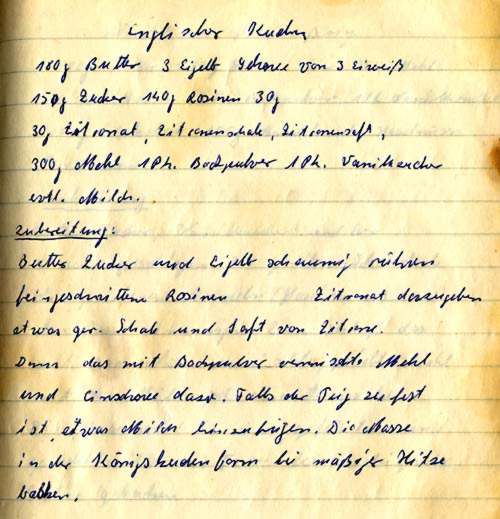 Englischer Kuchen
180g Butter 3 Eigelb Schnee von 3 Eiweiß
150g Zucker 140g Rosinen 30g
30g Zitronat, Zitronenschale, Zitronensaft,
300g Mehl 1 Pk. Backpulver 1 Pk. Vanillzucker
evtl. Milch.
Zubereitung:
Butter Zucker und Eigelb schaumig rühren
feingeschnittene Rosinen Zitronat dazugeben
etwas ger. Schale und Saft von Zitrone.
Dann das mit Backpulver vermischte Mehl
und Eischnee dazu. Falls der Teig zu fest
ist, etwas Milch hinzufügen. Die Masse
in der Königskuchenform bei mäßiger Hitze
backen.